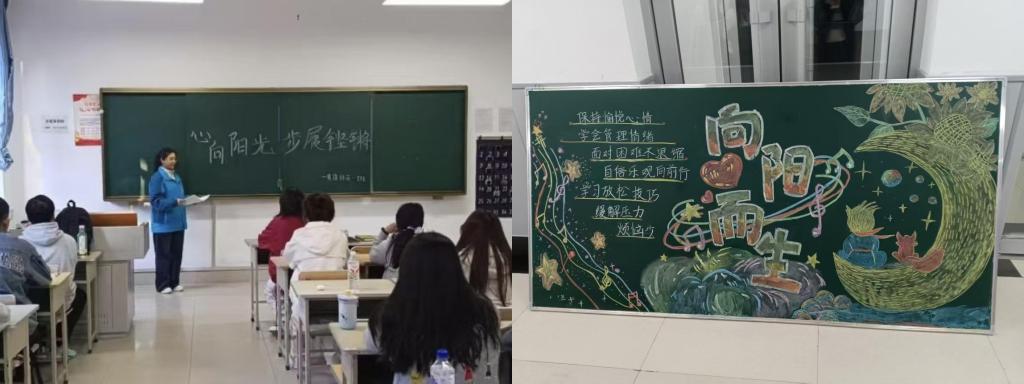 心向阳光 步履铿锵
保持愉悦心情
学会管理情绪
面对困难不畏缩
自信乐观向前行
学习放松技巧
缓解压力
烦恼少
向阳而生